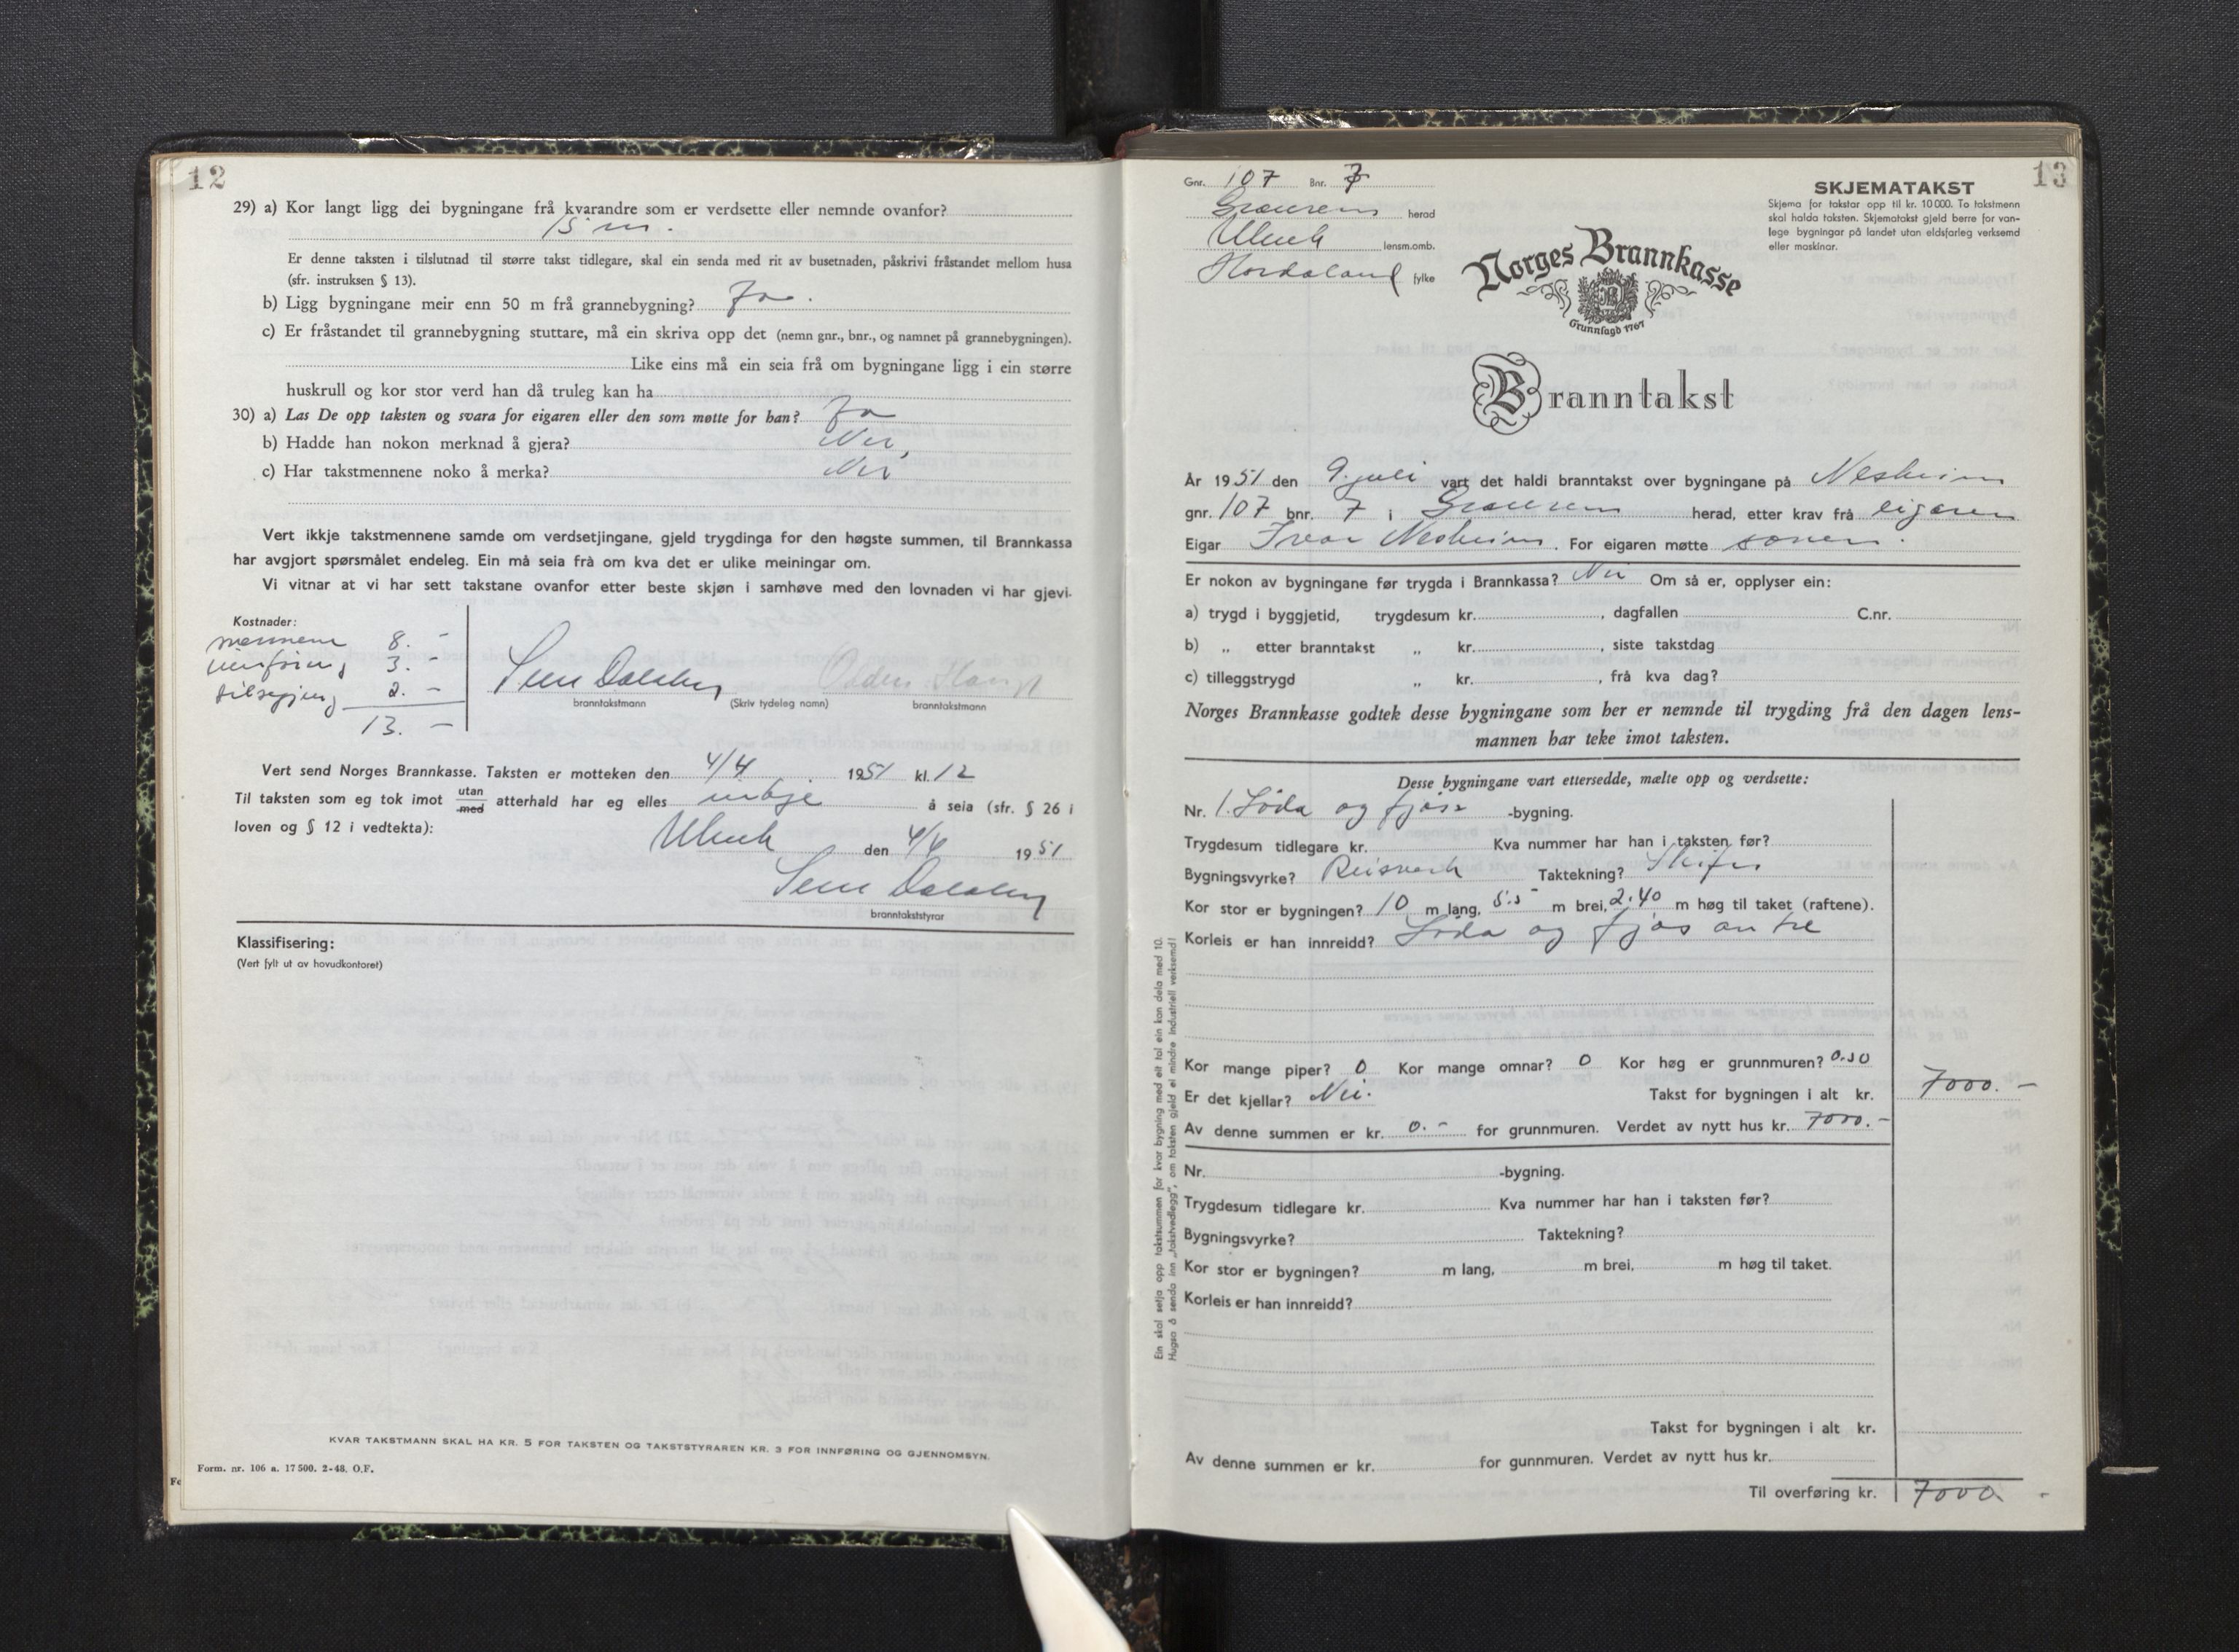 12
29) a) Kor langt ligg dei bygningane frå kvarandre som er verdsette eller nemnde ovanfor?
15 m.
Er denne taksten i tilslutnad til større takst tidlegare, skal ein senda med rit av busetnaden, påskrivi fråstandet mellom husa
(sfr. instruksen § 13).
b) Ligg bygningane meir enn 50 m frå grannebygning? Ja.
c) Er fråstandet til grannebygning stuttare, må ein skriva opp det (nemn gnr., bnr., og namnet på grannebygningen).
Like eins må ein seia frå om bygningane ligg i ein større
huskrull og kor stor verd han då truleg kan ha
30) a) Las De opp taksten og svara for eigaren eller den som møtte for han? Ja
b) Hadde han nokon merknad å gjera? Nei,
c) Har takstmennene noko å merka? Nei
Vert ikkje takstmennene samde om verdsetjingane, gjeld trygdinga for den høgste summen, til Brannkassa
har avgjort spørsmålet endeleg. Ein må seia frå om kva det er ulike meiningar om.
Vi vitnar at vi har sett takstane ovanfor etter beste skjøn i samhøve med den lovnaden vi har gjevi.
Kostnader:
mennene 8. -
innføring 3. -
tilsegjing 2. -
13. -
branntakstmann (Skriv tydeleg namn) branntakstmann
Vert send Norges Brannkasse. Taksten er motteken den 4/4 1951 kl. 12
Til taksten som eg tok imot utan med atterhald har eg elles inkje å seia (sfr. § 26 i
loven og § 12 i vedtekta):
den 4/4 1951
branntakststyrar
Klassifisering:
(Vert fylt ut av hovudkontoret)
KVAR TAKSTMANN SKAL HA KR. 5 FOR TAKSTEN OG TAKSTSTYRAREN KR. 3 FOR INNFØRING OG GJENNOMSYN.
Form. nr. 106 a. 17 500. 2-48. O.F.
13
Gnr. 107 Bnr. 7
herad
lensm.omb.
Hordaland fylke
SKJEMATAKST
Skjema for takstar opp til kr. 10 000. To takstmenn
skal halda taksten. Skjematakst gjeld berre for van-
lege bygningar på landet utan eldsfarleg verksemd
eller maskinar.
Norges Brannkasse
Grunnlagd 1767
Branntakst
År 1951 den 9. juli vart det haldi branntakst over bygningane på Nesheim
gnr. 107 bnr. 7 i herad, etter krav frå eigaren
Eigar Ivar Nesheim. For eigaren møtte sonen.
Er nokon av bygningane før trygda i Brannkassa? Nei Om så er, opplyser ein:
a) trygd i byggjetid, trygdesum kr. , dagfallen C.nr.
b) „ etter branntakst „ kr. , siste takstdag
c) tilleggstrygd „ kr. , frå kva dag?
Norges Brannkasse godtek desse bygningane som her er nemnde til trygding frå den dagen lens-
mannen har teke imot taksten.
Desse bygningane vart ettersedde, mælte opp og verdsette:
Nr. 1. Löda og fjös -bygning.
Trygdesum tidlegare kr. Kva nummer har han i taksten før?
Bygningsvyrke? Reisverk Taktekning? Skifer
Kor stor er bygningen? 10 m lang, 5.5 m brei, 2.40 m høg til taket (raftene).
Korleis er han innreidd? Löda og fjös av tre
Kor mange piper? 0 Kor mange omnar? 0 Kor høg er grunnmuren?
Er det kjellar? Nei. Takst for bygningen i alt kr. 7000. -
Av denne summen er kr. 0. - for grunnmuren. Verdet av nytt hus kr. 7000. -
Nr. -bygning.
Trygdesum tidlegare kr. Kva nummer har han i taksten før?
Bygningsvyrke? Taktekning?
Kor stor er bygningen? m lang, m brei, m høg til taket.
Korleis er han innreidd?
Takst for bygningen i alt kr.
Av denne summen er kr. for gunnmuren. Verdet av nytt hus kr.
Til overføring kr. 7000. -
Ein skal setja opp takstsummen for kvar bygning med eit tal ein kan dela med 10.
Hugsa å senda inn „takstvedlegg", om taksten gjeld ei mindre industriell verksemd!